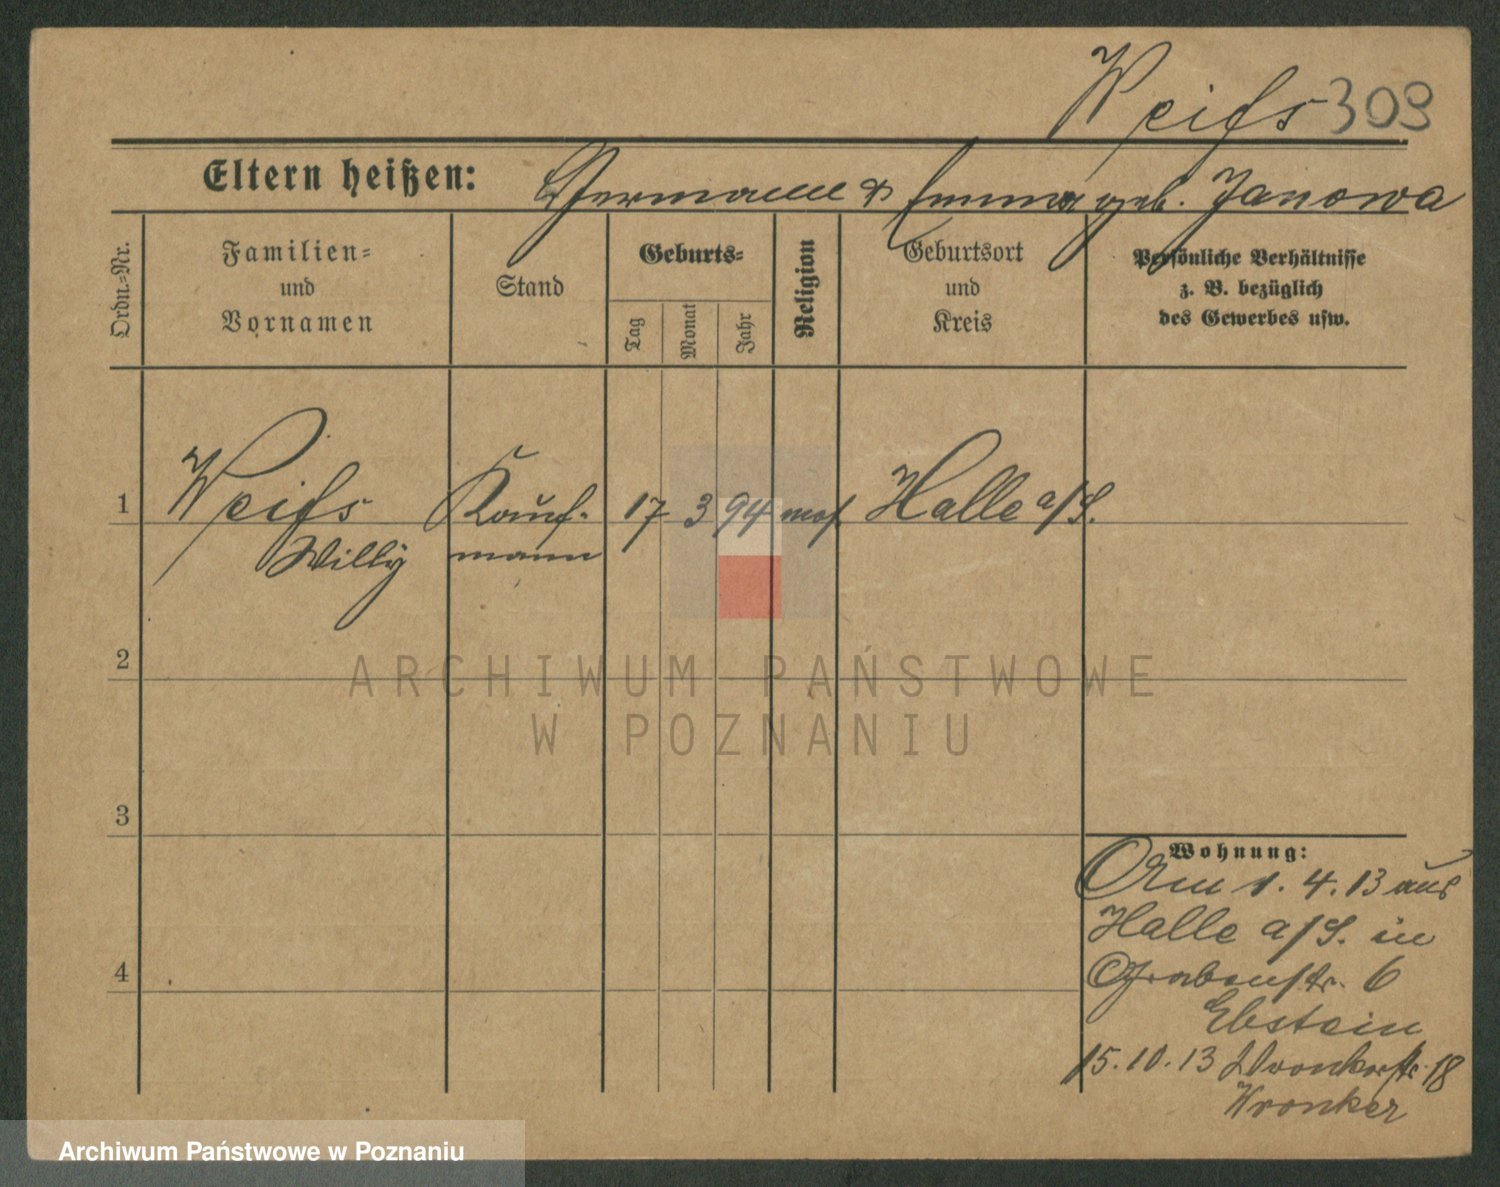 Weiſs 309
Eltern heißen: Hermann & Emma geb. Janowa
Ordn.-Nr.
Familien-
und
Vornamen
Stand
Geburts-
Tag
Monat
Jahr
Religion
Geburtsort
und
Kreis
Persönliche Verhältnisse
z. B. bezüglich
des Gewerbes usw.
1 Weiſs Kauf- 17 3 94 mos. Halle a/S.
Willy mann
2
ARCHIWUM PAŃSTWOWE
W POZNANIU
3
Wohnung:
Am 1. 4. 13 aus
Halle a/S. in
4
Grabenstr. 6
Ebstein
15. 10. 13 Wronkerstr. 18
Wronker
Archiwum Państwowe w Poznaniu